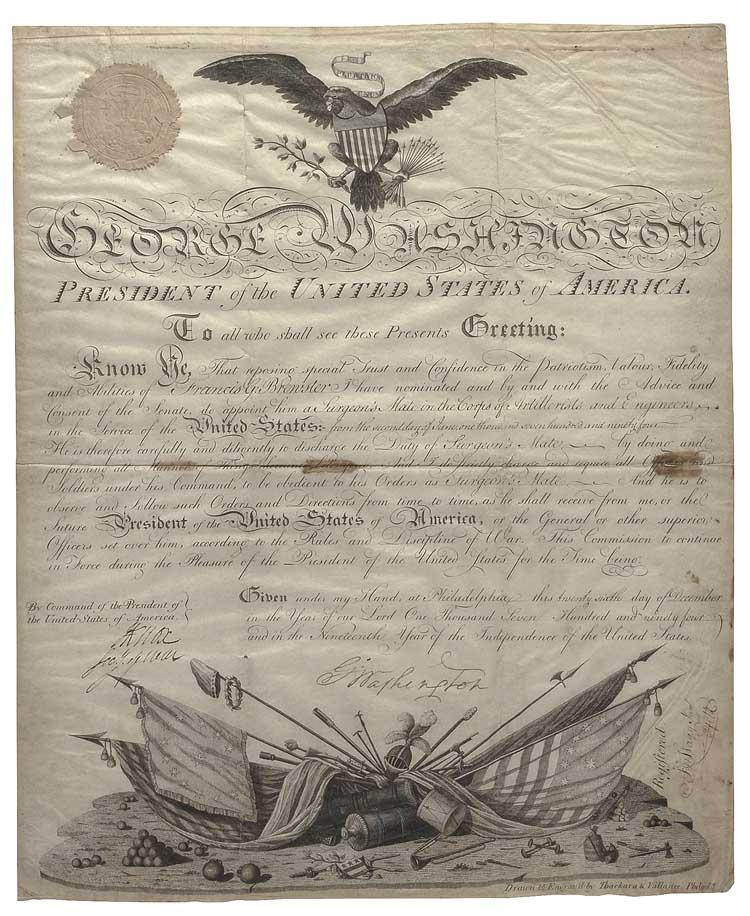 E PLURIBUS UNUM
GEORGE WASHINGTON
PRESIDENT of the UNITED STATES of AMERICA.
To all who shall see these Presents Greeting:
Know Ye, That reposing special Trust and Confidence in the Patriotism, Valour, Fidelity
and Abilities of Francis G. Brewster I have nominated and by and with the Advice and
Consent of the Senate, do appoint him a Surgeon's Mate in the Corps of Artillerists and Engineers
in the Service of the United States: from the second day of June, one thousand seven hundred and ninety four
He is therefore carefully and diligently to discharge the Duty of Surgeon's Mate by doing and
performing all Manner of Things And I do strictly charge and require all Officers and
Soldiers under his Command, to be obedient to his Orders as Surgeon's Mate And he is to
observe and follow such Orders and Directions from time to time, as he shall receive from me, or the
future President of the United States of America, or the General or other superior
Officers set over him, according to the Rules and Discipline of War. This Commission to continue
in Force during the Pleasure of the President of the United States for the Time being.
Given under my Hand, at Philadelphia this twenty sixth day of December
in the Year of our Lord One Thousand Seven Hundred and ninety four
and in the Nineteenth Year of the Independence of the United States.
By Command of the President of
the United States of America.
H Knox
Secy of War
G Washington
Registered
Drawn & Engraved by Thackara & Vallance Philad.